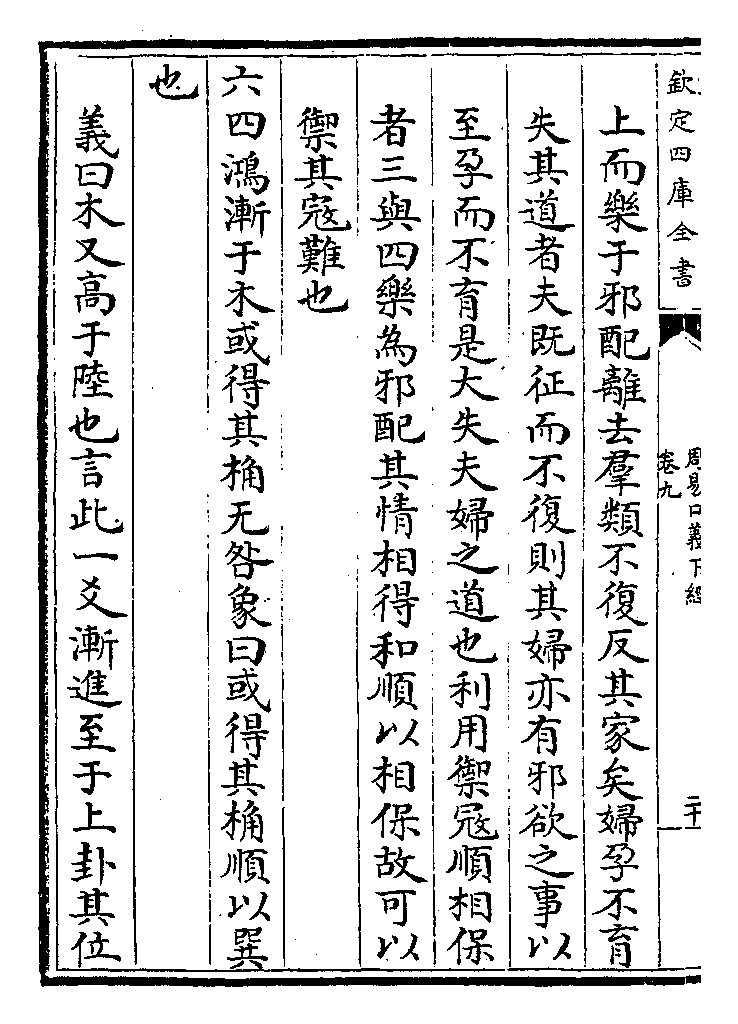 欽定四庫全書
周易口義下經
卷九
二十
上而樂于邪配離去羣類不復反其家矣婦孕不育
失其道者夫既征而不復則其婦亦有邪欲之事以
至孕而不育是大失夫婦之道也利用禦冦順相保
者三與四樂為邪配其情相得和順以相保故可以
禦其冦難也
六四鴻漸于木或得其桷无咎象曰或得其桷順以巽
也
義曰木又高于陸也言此一爻漸進至于上卦其位